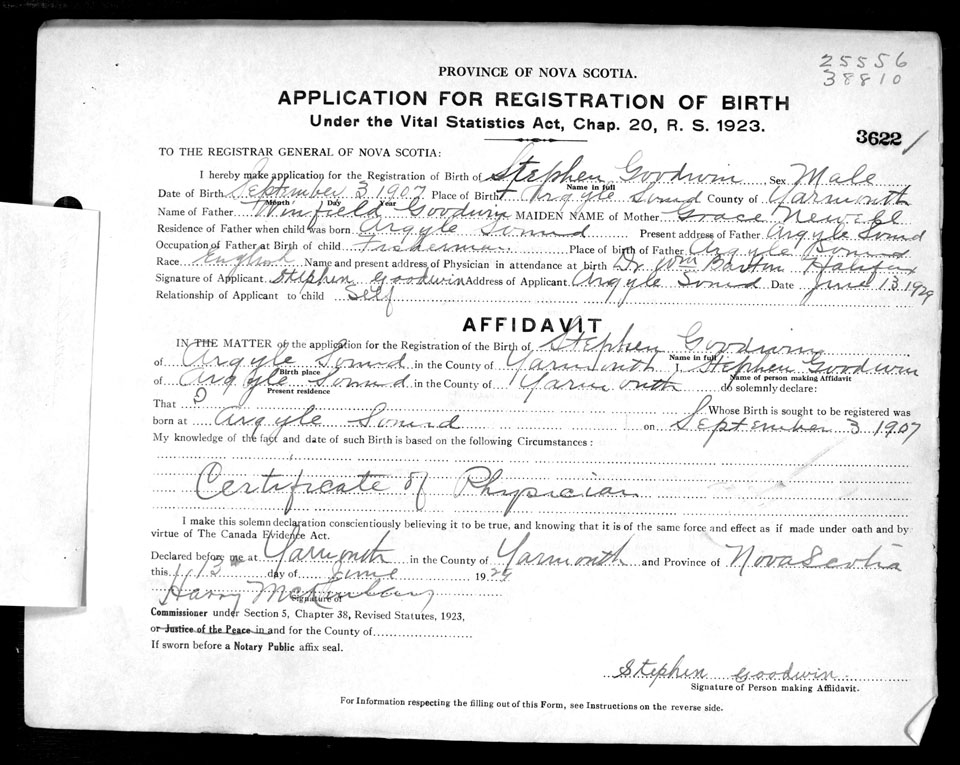 25556
38810
PROVINCE OF NOVA SCOTIA.
APPLICATION FOR REGISTRATION OF BIRTH
Under the Vital Statistics Act, Chap. 20, R. S. 1923.
3622
TO THE REGISTRAR GENERAL OF NOVA SCOTIA:
I hereby make application for the Registration of Birth of Stephen Goodwin Sex Male
Name in full
Date of Birth September 3 1907 Place of Birth Argyle Sound County of Yarmouth
Month Day Year
Name of Father Winfield Goodwin MAIDEN NAME of Mother Grace
Residence of Father when child was born Argyle Sound Present address of Father Argyle Sound
Occupation of Father at Birth of child Fisherman Place of birth of Father Argyle Sound
Race English Name and present address of Physician in attendance at birth Dr. Wm Barton Halifax
Signature of Applicant Stephen Goodwin Address of Applicant Argyle Sound Date June 13 1929
Relationship of Applicant to child Self
AFFIDAVIT
IN THE MATTER of the application for the Registration of the Birth of Stephen Goodwin
Name in full
of Argyle Sound in the County of Yarmouth I, Stephen Goodwin
Birth place Name of person making Affidavit
of Argyle Sound in the County of Yarmouth do solemnly declare:
Present residence
That I Whose Birth is sought to be registered was
born at Argyle Sound on September 3 1907
My knowledge of the fact and date of such Birth is based on the following Circumstances:
Certificate of Physician
I make this solemn declaration conscientiously believing it to be true, and knowing that it is of the same force and effect as if made under oath and by
virtue of The Canada Evidence Act.
Declared before me at Yarmouth in the County of Yarmouth and Province of Nova Scotia
this 13 day of June 1929
Harry
Signature of
Commissioner under Section 5, Chapter 38, Revised Statutes, 1923,
or Justice of the Peace in and for the County of
If sworn before a Notary Public affix seal.
Stephen Goodwin
Signature of Person making Affidavit.
For Information respecting the filling out of this Form, see Instructions on the reverse side.